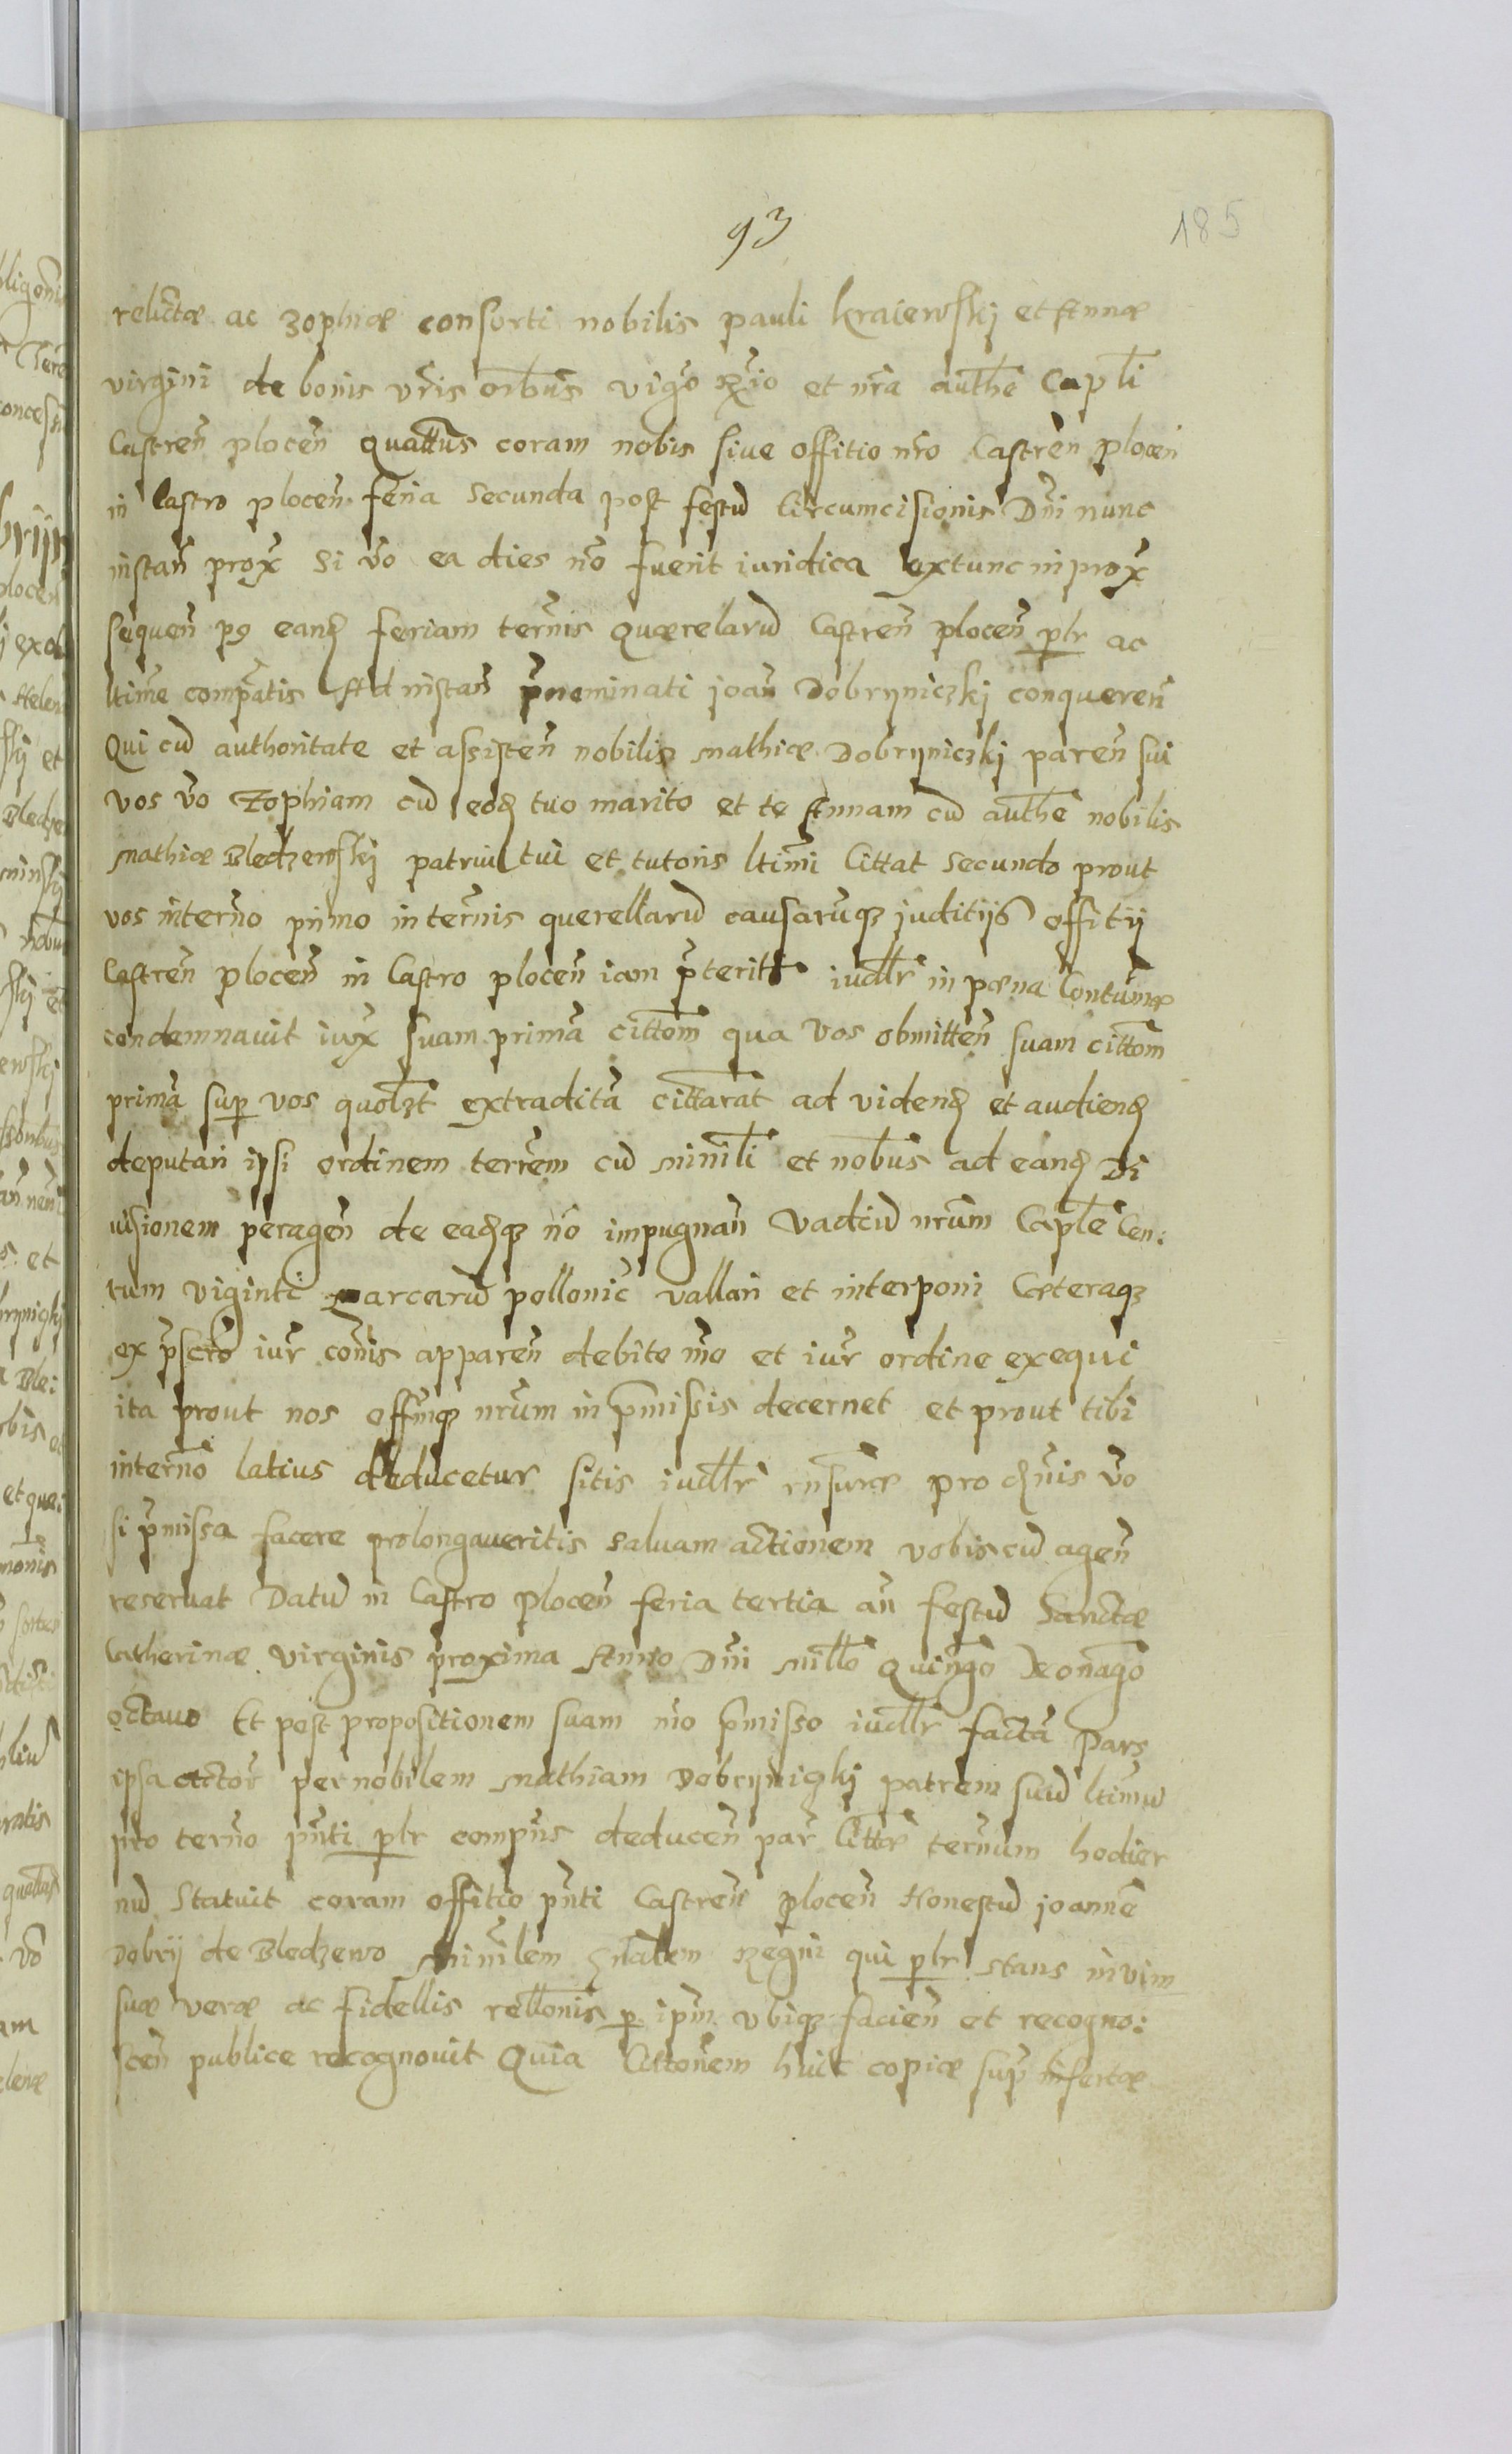 93
185
relictæ ac Zophiæ consorti nobilis pauli kraiewskj et Annæ
virgini de bonis vr̃is om̃ibus vigo r̃gio et nr̃a auth̃e Capl̃i
Castren̄ plocen̄ quatt̃us coram nobis siue offitio nr̃o Castren̄ plocen̄
in Castro plocen̄ feria Secunda post festū Circumcisionis Dn̄i nunc
instan̄ prox̃ Si ṽo ea dies nō fuerit iuridica extunc in prox̃
sequen̄ p9 eand̃ feriam ter̃nis quærelarū Castren̄ plocen̄ pl̃r ac
ltime comp̃atis Ad instan̄ p̃nominati joan̄ Dobryniczkj conqueren̄
Qui cū authoritate et assisten̄ nobilis Mathiæ Dobryniczkj paren̄ sui
vos ṽo Zophiam cū eod̃ tuo marito et te Annam cū auth̃e nobilis
Mathiæ Bledzewskj patrui tui et tutoris ltimi Cittat Secundo prout
vos in ter̃no primo in ter̃nis querellarū causarumq; juditijs offitij
Castren̄ plocen̄ in Castro plocen̄ iam p̃terit iudl̃r in pœna Contum̃æ
condemnauit iux̃ suam primā citt̃om̃ qua vos obmitten̄ suam citt̃om̃
primā sup̃ vos quolz̃t extraditā citt̃arat ad videnд et audienд
deputari ipsi ordinem terr̃em cū Minil̃i et nob̃us ad eand̃ Di
uisionem peragen̄ de eadq; nō impugnan̄ vadiū nr̃um Capl̃e Cen:
tum viginti Marcarū pollonic̃ vallari et interponi Cæteraq;
ex p̃scr̃o iur̃ con̄is apparen̄ debite m̃o et iur̃ ordine exequi
ita prout nos off̃mq; nr̃um in p̃missis decernet et prout tibi
in ter̃no latius deducetur sitis iudl̃r rñsuræ pro д̃nis ṽo
si p̃missa facere prolongaueritis saluam actionem vobiscū agen̄
reseruat Datū in Castro plocen̄ feria tertia an̄ festū Sanctæ
Catherinæ virginis proxima Anno Dn̄i mill̃o Quing̃o Nonag̃o
octauo Et post propositionem suam m̃o p̃misso iudl̃r factā Pars
ipsa actor̃ per nobilem Mathiam Dobrynickj patrem suū ltimū
pro ter̃no p̃nti pl̃r comp̃ns deducen̄ par̃ Citt̃æ ter̃num hodier
nū Statuit coram offitio p̃nti Castren̄ plocen̄ Honestū joannē
Dobrij de Bledzewo Minil̃em gñalem Regni qui pl̃r stans in vim
suæ veræ ac fidellis rell̃onis p̱ ip̃m vbiq; facien̄ et recogno:
scen̄ publice recognouit Quia Citt̃onem huic copiæ sup̃ insertæ